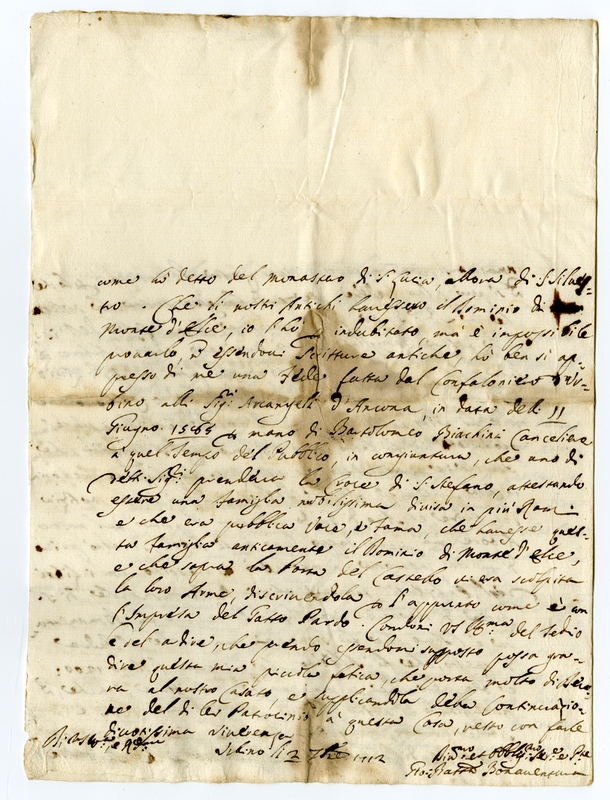 come hò detto del monastero di S. Lucia, allora di S. Silves=
tro. Che li nostri Antichi havessero il Dominio di
Monte d'Elce, io l'hò p indubitato, mà è impossibile
provarlo, p essendovi Scritture antiche, hò ben sì ap=
presso di me una Fede fatta dal Confaloniero d'Ur=
bino alli Sig.ri Arcangeli d'Ancona, in data deli 11
Giugno 1565 p mano di Bartolomeo Bianchini Cancelliere
à quel Tempo del Publico, in congiuntura, che uno di
detti Sig.ri prendeva la Croce di S. Stefano, attestando
essere una famiglia nobilissima divisa in più Rami
e che era pubblica voce, e fama, che havesse ques=
ta famiglia anticamente il Dominio di Monte d'Elce,
e che sopra la Porta del Castello vi era scolpita
la loro Arme, discrivendola p l'appunto come è con
l'Impresa del Gatto Pardo. Condoni VS Ill.ma del tedio
e del ardire, che prendo, essendomi supposto possa gra=
dire questa mia piccola fatica, che porta molto di
al nostro Casato, e supplicandola della Continuazio=
ne del di lei Patrocinio à questa Casa, resto con farle
divotissima riverenza
Di VS Ill.ma
Urbino li 2 7bre 1712
Gio: Batta Bonaventura